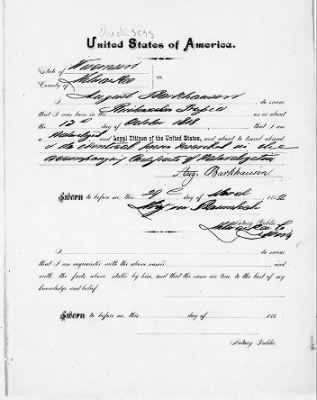 Check 3593
United States of America.
State of Wisconsin
County of Milwaukee ss.
I, August Barkhausen do swear
that I was born in the on or about
the 12th day of October 1818, that I am
a Naturalized and Loyal Citizen of the United States, and about to travel abroad
& the identical person described in the
accompanying Certificate of Naturalization
Aug. Barkhausen
Sworn to before me, this 29th day of March 1882
Notary Public
Milwaukee Co
Wis
I, do swear
that I am acquainted with the above named and
with the facts above stated by him, and that the same are true to the best of my
knowledge and belief.
Sworn to before me, this day of 188
Notary Public.